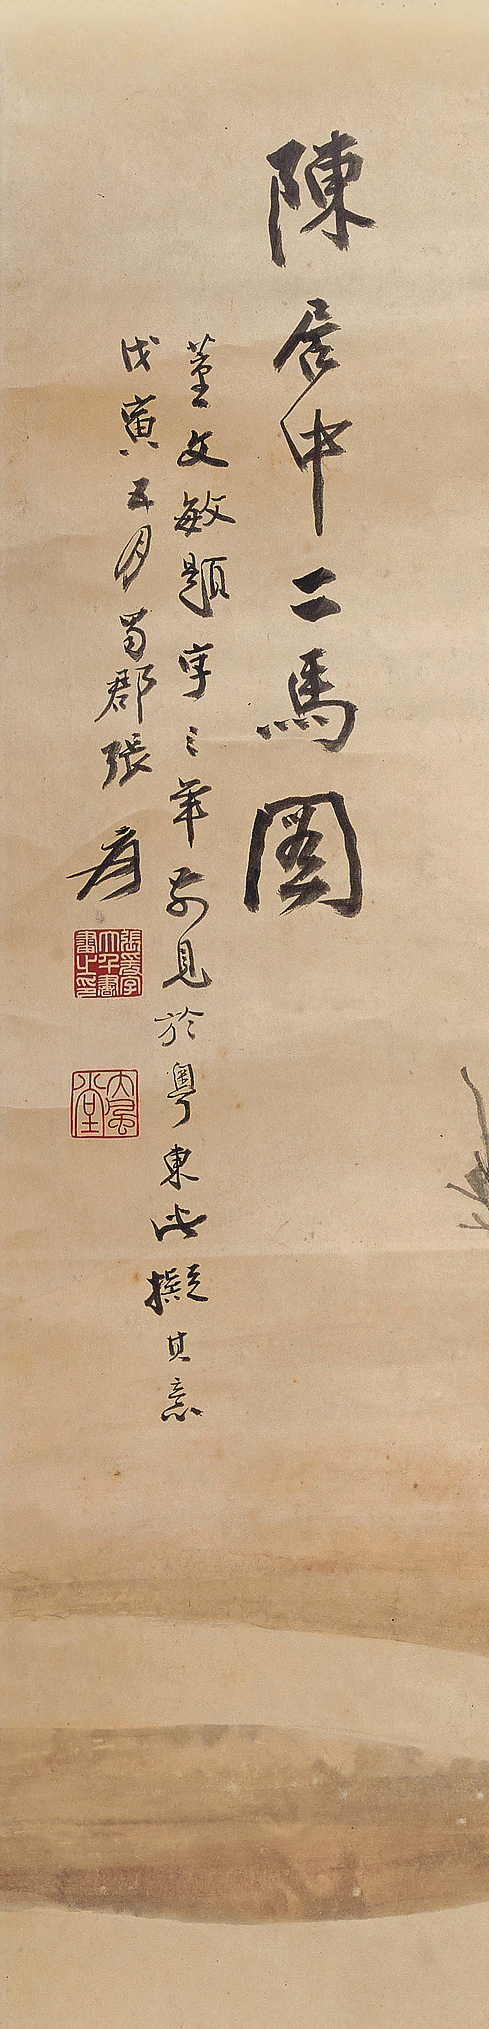 陳居中二馬圖
董文敏題字三年前見於粵東此擬其意
戊寅五月蜀郡張爰
張爰字大千書畫之印
大風堂